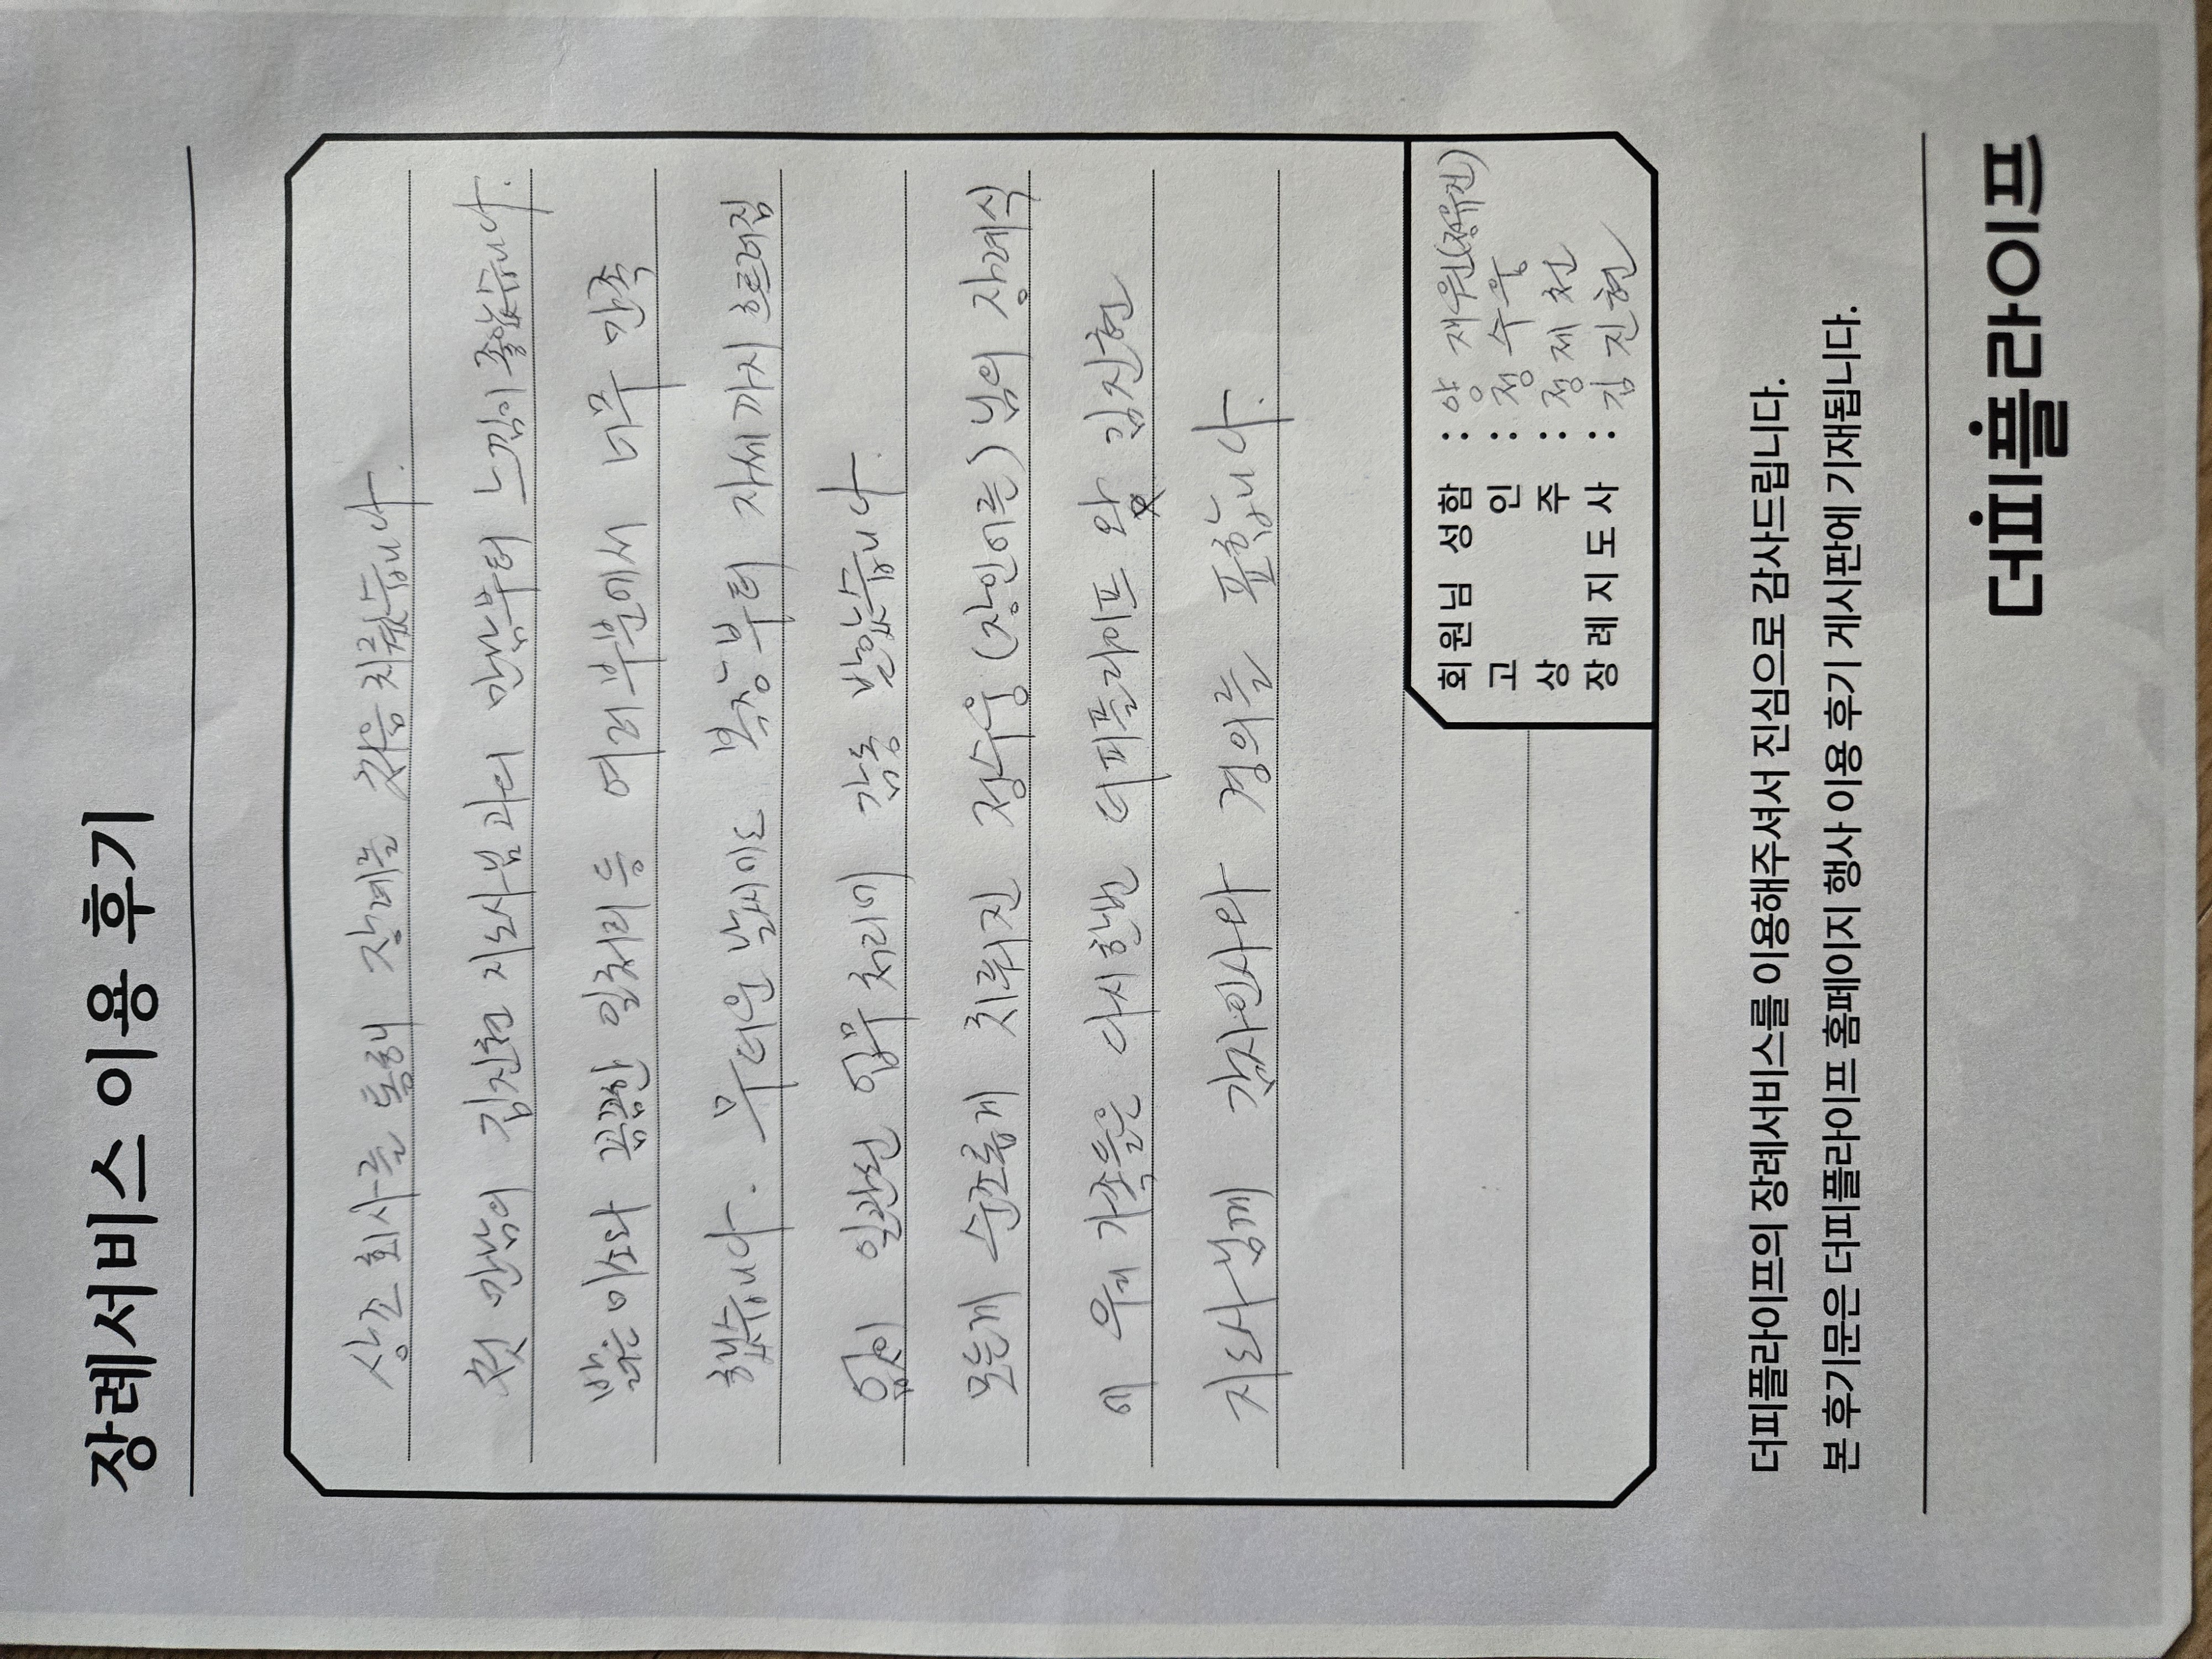 장례서비스 이용 후기
상조 회사를 통해 장례는 처음 치뤘습니다.
첫 만남의 김진현 지도사님과의 만남부터 느낌이 좋았습니다.
밝은 미소와 꼼꼼한 일처리 등 여러부분에서 너무 만족
했습니다. 무더운 날씨에도 복장부터 자세까지 흐트러짐
없이 일관된 업무처리에 감동 받았습니다.
모든게 순조롭게 치뤄진 정수웅(장인어른)님의 장례식
에 우리 가족들은 다시한번 더피플라이프 와 김진현
지도사님께 감사인사와 경의를 표합니다.
회원님 성함 : 양 재원(정유진)
고 인 : 정 수웅
상 주 : 정 제 천
장례지도사 : 김 진현
더피플라이프의 장례서비스를 이용해주셔서 진심으로 감사드립니다.
본 후기문은 더피플라이프 홈페이지 행사 이용 후기 게시판에 기재됩니다.
더피플라이프